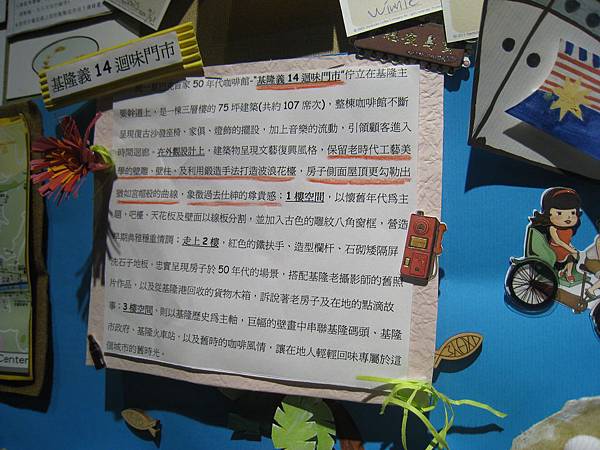 基隆義 14 迴味門市
家 50 年代咖啡館-"基隆義 14 迴味門市"佇立在基隆主
要幹道上，是一棟三層樓的 75 坪建築(共約 107 席次)，整棟咖啡館不斷
呈現復古沙發座椅、家俱、燈飾的擺設，加上音樂的流動，引領顧客進入
時間迴廊。在外觀設計上，建築物呈現文藝復興風格，保留老時代工藝美
學的壁雕、壁柱，及利用鍛造手法打造波浪花臺，房子側面屋頂更勾勒出
猶如官帽般的曲線，象徵過去仕紳的尊貴感；1 樓空間，以懷舊年代爲主
題，吧檯、天花板及壁面以線板分割，並加入古色的雕紋八角窗框，營造
早期典雅穩重情調；走上 2 樓，紅色的鐵扶手、造型欄杆、石砌矮隔屏
洗石子地板，忠實呈現房子於 50 年代的場景，搭配基隆老攝影師的舊照
片作品，以及從基隆港回收的貨物木箱，訴說著老房子及在地的點滴故
事；3 樓空間，則以基隆歷史爲主軸，巨幅的壁畫中串聯基隆碼頭、基隆
市政府、基隆火車站，以及舊時的咖啡風情，讓在地人輕輕回味專屬於這
個城市的舊時光。
Winnie
Center